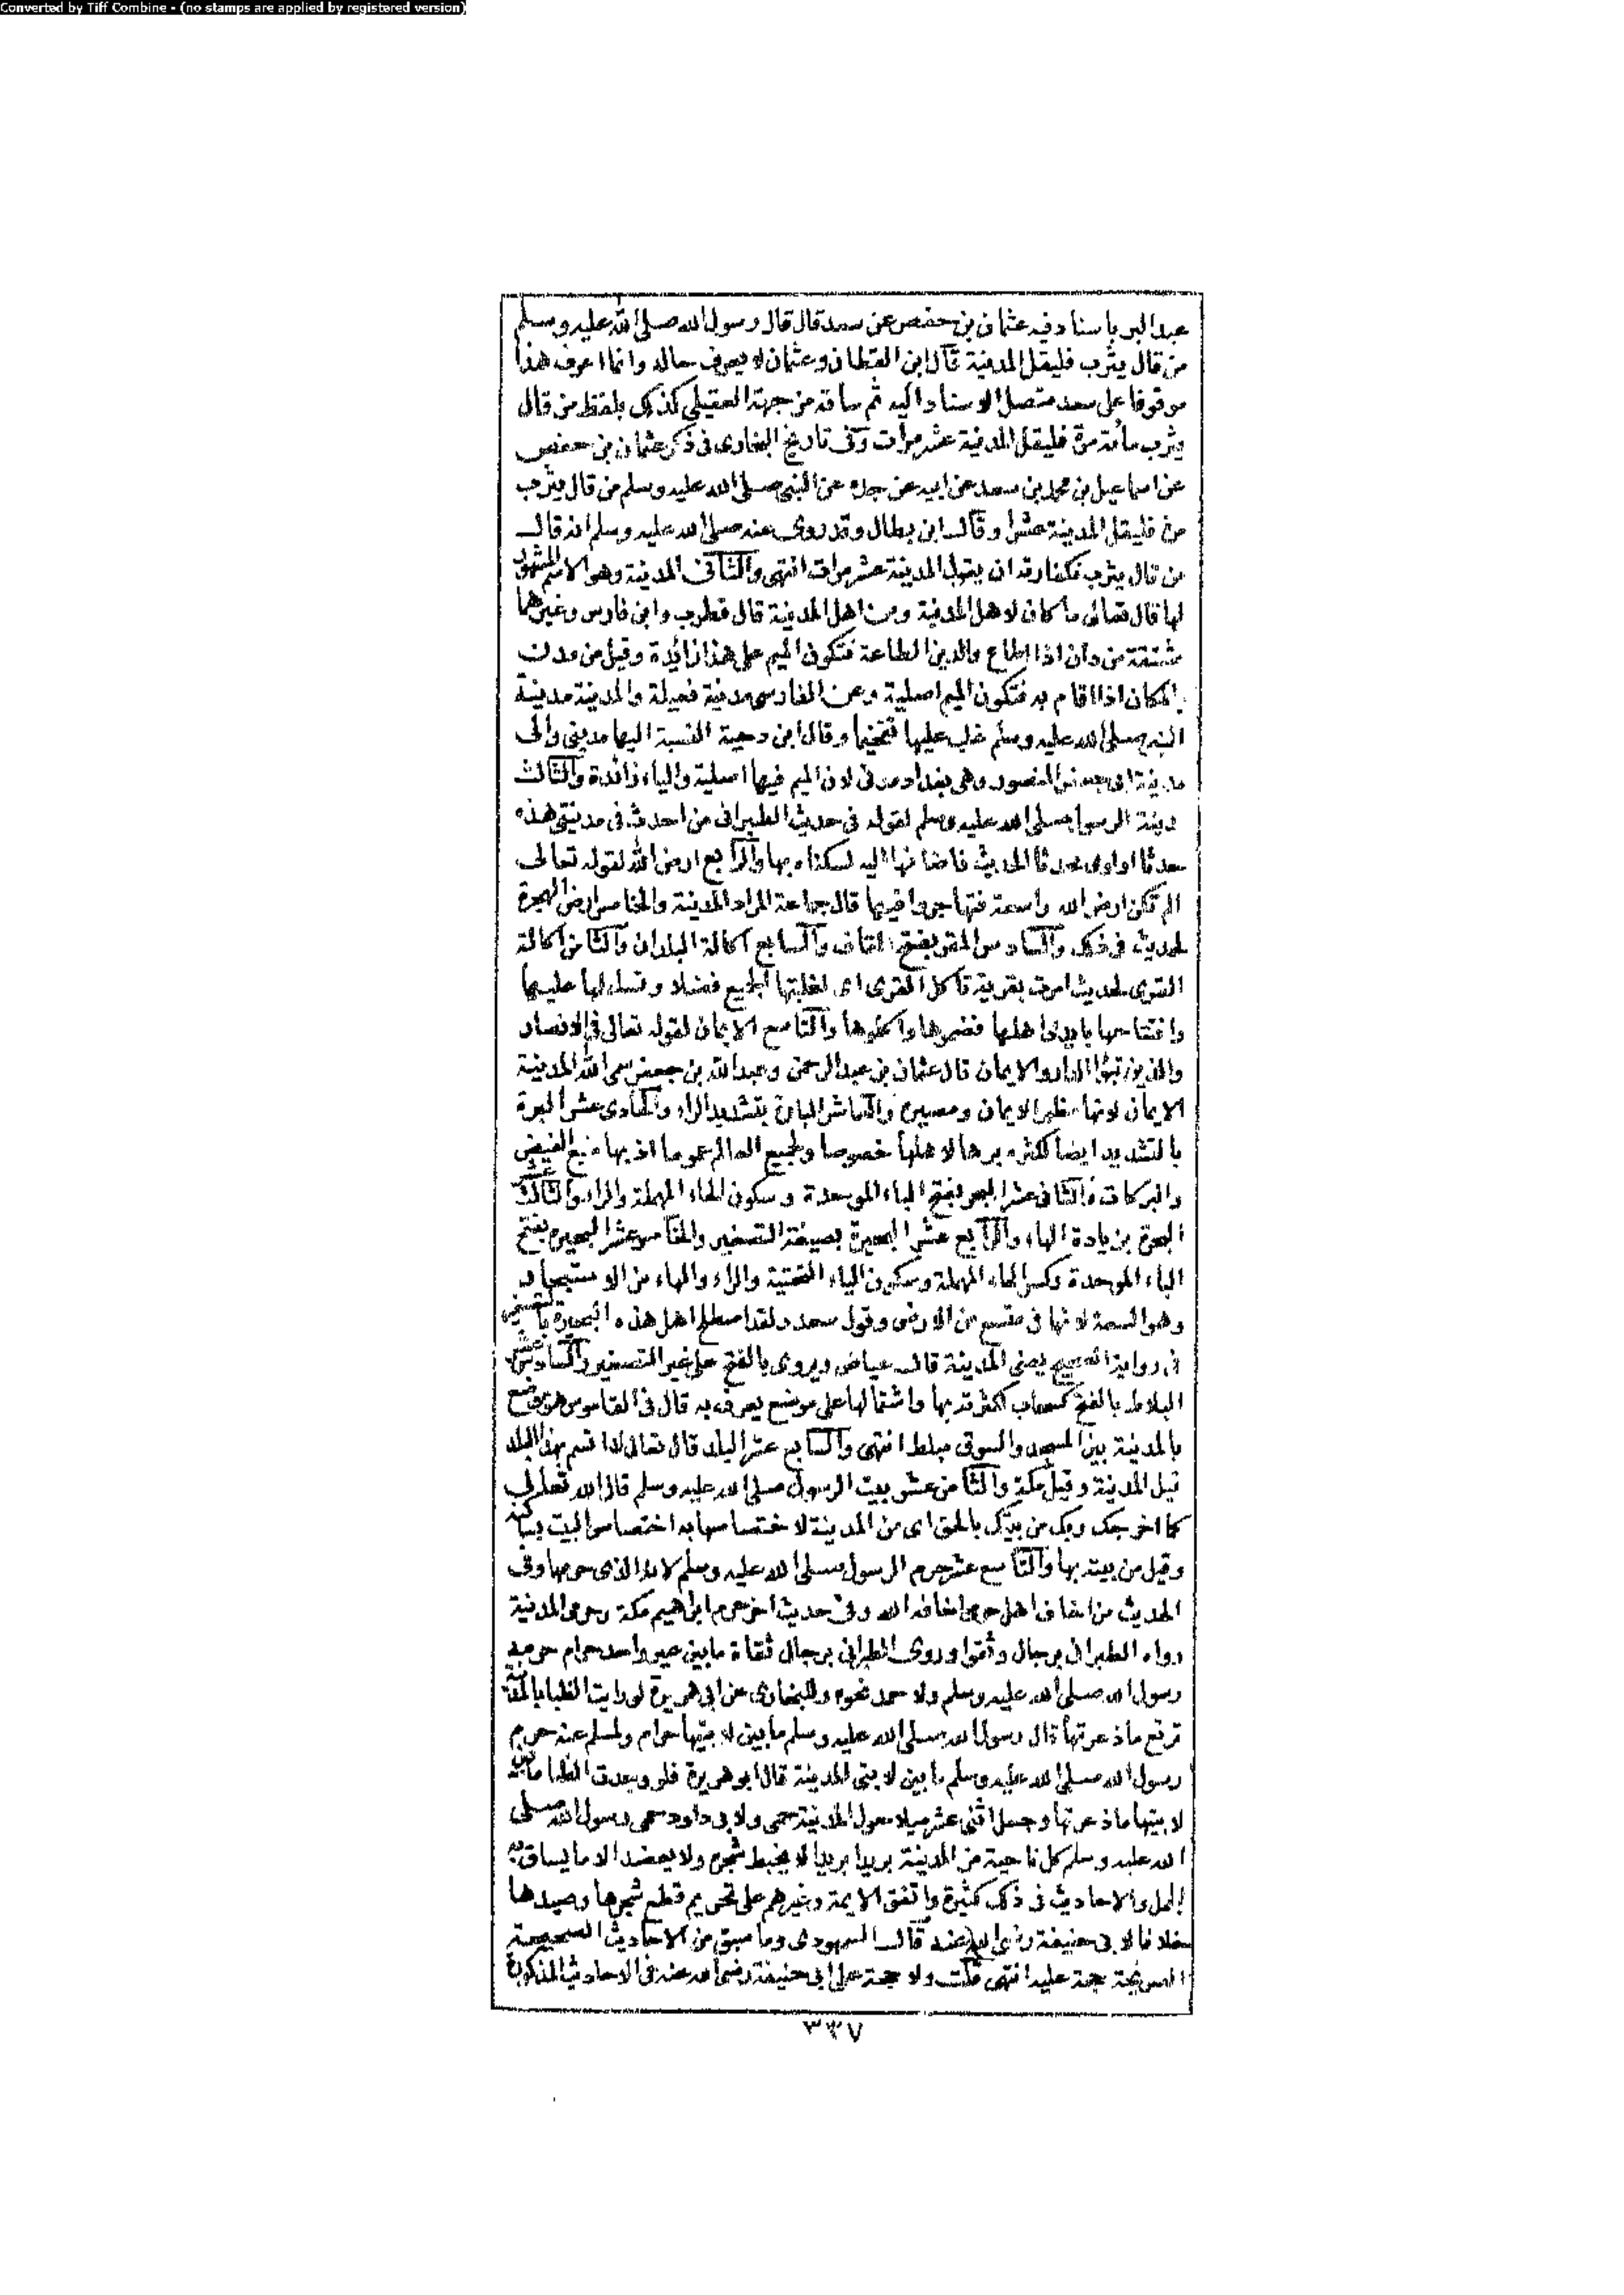 Converted by Tiff Combine - (no stamps are applied by registered version)
عبد البر باسناد فيه عثمان بن حفص عن سعد قال قال رسول الله صلى الله عليه وسلم
من قال يثرب فليقل المدينة قال ابن القطان وعثمان لا يعرف حاله وانما اعرف هذا
موقوفا على سعد متصل الاسناد اليه ثم ساقه من جهة العقيلي كذلك بلفظ من قال
يثرب مأة مرة فليقل المدينة عشر مرات وفى تاريخ البخارى فى ذكر عثمان بن حفص
عن اسماعيل بن محمد بن سعد عن ابيه عن جده عن النبى صلى الله عليه وسلم من قال يثرب
من فليقل المدينة عشرا وقال ابن بطال وقد روى عنه صلى الله عليه وسلم انه قال
من قال يثرب فكفارته ان يقول المدينة عشر مرات انتهى والثانى المدينة وهو الاسم المشهور
لها قال تعالى ما كان لاهل المدينة ومن اهل المدينة قال قطرب وابن فارس وغيرهما
مشتقة من دان اذا اطاع والدين الطاعة فتكون الميم على هذا زائدة وقيل من مدن
بالمكان اذا اقام به فتكون الميم اصلية وعن الفارسى مدينة فعيلة والمدينة مدينة
النبى صلى الله عليه وسلم غلب عليها تفخيما وقال ابن دحية النسبة اليها مدينى والى
مدينة ابى جعفر المنصور وهى بغداد مدنى لان الميم فيها اصلية والياء زائدة والثالث
مدينة الرسول صلى الله عليه وسلم لقوله فى حديث الطبرانى من احدث فى مدينتى هذه
حدثا او اوى محدثا الحديث فاضافها اليه لسكناه بها والرابع ارض الله لقوله تعالى
الم تكن ارض الله واسعة فتهاجروا فيها قال جماعة المراد المدينة والخامس ارض الهجرة
لحديث فى ذلك والسادس المقر بفتح القاف والسابع اكالة البلدان والثامن اكالة
القرى لحديث امرت بقرية تأكل القرى اى لغلبتها الجميع فضلا وتسلطها عليها
وافتتاحها بايدى اهلها فغنموها واكلوها والتاسع الايمان لقوله تعالى فى الانصار
والذين تبؤا الدار والايمان قال عثمان بن عبد الرحمن وعبد الله بن جعفر سمى الله المدينة
الايمان لانها مظهر الايمان ومصيره والعاشر البارة بتشديد الراء والحادى عشر البرة
بالتشديد ايضا لكثرة برها لاهلها خصوصا ولجميع العالم عموما اذ بها منبع الفيض
والبركات والثانى عشر البحر بفتح الباء الموحدة وسكون الحاء المهملة والراء والثالث عشر
البحرة بزيادة الهاء والرابع عشر البحيرة بصيغة التصغير والخامس عشر البحيرة بفتح
الباء الموحدة وكسر الحاء المهملة وسكون الياء التحتية والراء والهاء من الاستبحار
وهو السعة لانها فى متسع من الارض وقول سعد ولقد اصطلح اهل هذه البحيرة بالتصغير
فى رواية الصحيح يعنى المدينة قال عياض ويروى بالفتح على غير التصغير والسادس عشر
البلاط بالفتح كسحاب لكثرته بها واشتمالها على موضع يعرف به قال فى القاموس هو موضع
بالمدينة بين المسجد والسوق مبلط انتهى والسابع عشر البلد قال تعالى لا اقسم بهذا البلد
قيل المدينة وقيل مكة والثامن عشر بيت الرسول صلى الله عليه وسلم قال الله تعالى
كما اخرجك ربك من بيتك بالحق اى من المدينة لاختصاصها به اختصاص البيت بساكنه
وقيل من بيته بها والتاسع عشر حرم الرسول صلى الله عليه وسلم لانه الذى حرمها وفى
الحديث من اخاف اهل حرمى اخافه الله وفى حديث اخر حرم ابراهيم مكة وحرمى المدينة
رواه الطبرانى برجال وثقوا وروى الطبرانى برجال ثقاة ما بين عير واحد حرام حرمه
رسول الله صلى الله عليه وسلم ولاحمد نحوه وللبخارى عن ابى هريرة لو رايت الظبا بالمدينة
ترتع ما ذعرتها قال رسول الله صلى الله عليه وسلم ما بين لابتيها حرام ولمسلم عنه حرم
رسول الله صلى الله عليه وسلم ما بين لابتى المدينة قال ابو هريرة فلو وجدت الظبا ما بين
لابتيها ما ذعرتها وجعل اثنى عشر ميلا حول المدينة حمى ولابى داود حمى رسول الله صلى
الله عليه وسلم كل ناحية من المدينة بريدا بريدا لا يخبط شجره ولا يعضد الا ما يساق به
الجمل والاحاديث فى ذلك كثيرة واتفق الايمة وغيرهم على تحريم قطع شجرها وصيدها
خلافا لابى حنيفة رضى الله عنه قال السمهودى وما سبق من الاحاديث الصحيحة
الصريحة حجة عليه انتهى قلت ولا حجة على ابى حنيفة رضى الله عنه فى الاحاديث المذكورة
٣٣٧